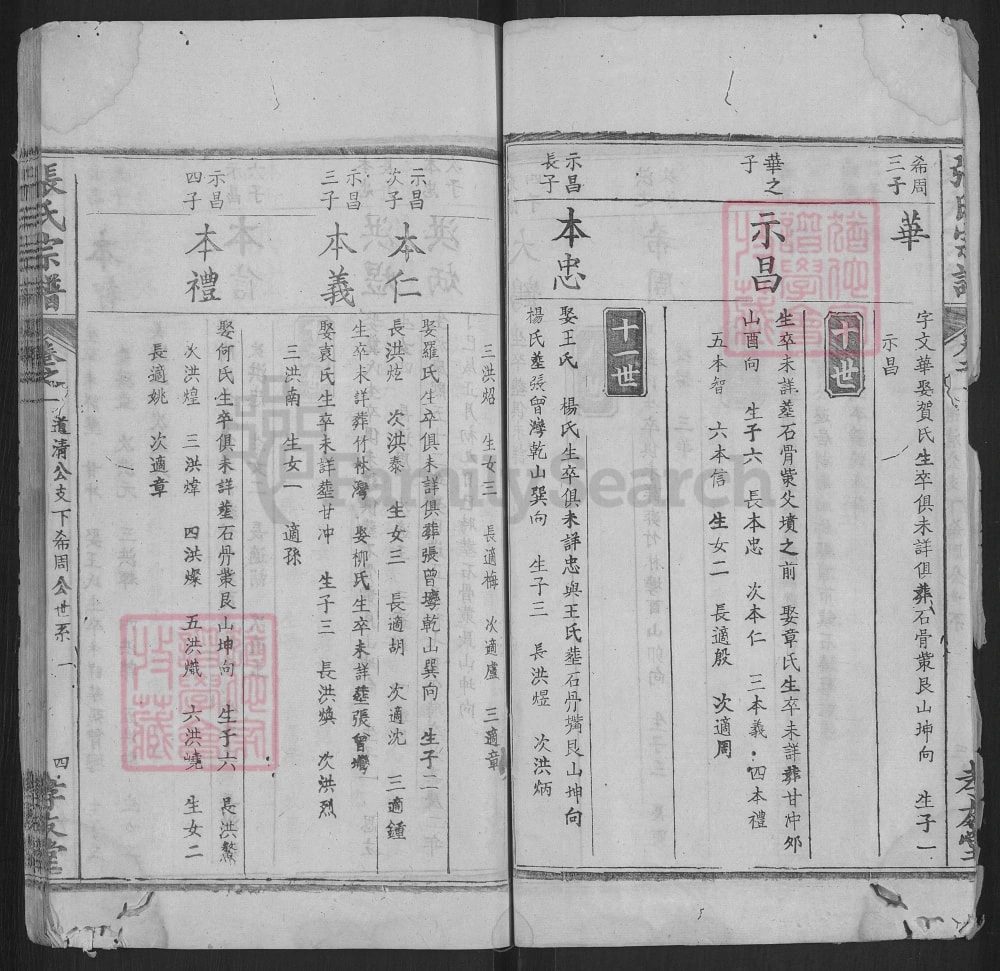 希周
三子
華
字文華娶賀氏生卒俱未詳俱葬石骨業艮山坤向 生子一
示昌
十世
華之
子
示昌
生卒未詳塟石骨業父墳之前 娶章氏生卒未詳葬甘冲邜
山酉向 生子六 長本忠 次本仁 三本義 四本禮
五本智 六本信 生女二 長適殷 次適周
十一世
示昌
長子
本忠
娶王氏 楊氏生卒俱未詳忠與王氏塟石骨嘴艮山坤向
楊氏塟張曾灣乾山巽向 生子三 長洪煜 次洪炳
三洪炤 生女三 長適梅 次適盧 三適章
示昌
次子
本仁
娶羅氏生卒俱未詳俱葬張曾灣乾山巽向 生子二
長洪炫 次洪泰 生女三 長適胡 次適沈 三適鍾
示昌
三子
本義
生卒未詳葬竹林灣 娶柳氏生卒未詳塟張曾灣
娶袁氏生卒未詳塟甘冲 生子三 長洪煥 次洪烈
三洪南 生女一 適孫
示昌
四子
本禮
娶何氏生卒俱未詳塟石骨業艮山坤向 生子六 長洪鰲
次洪煌 三洪煒 四洪燦 五洪熾 六洪嶢 生女二
長適姚 次適章
張氏宗譜
卷之一
道清公支下希周公世系 一
四
孝友堂
FamilySearch